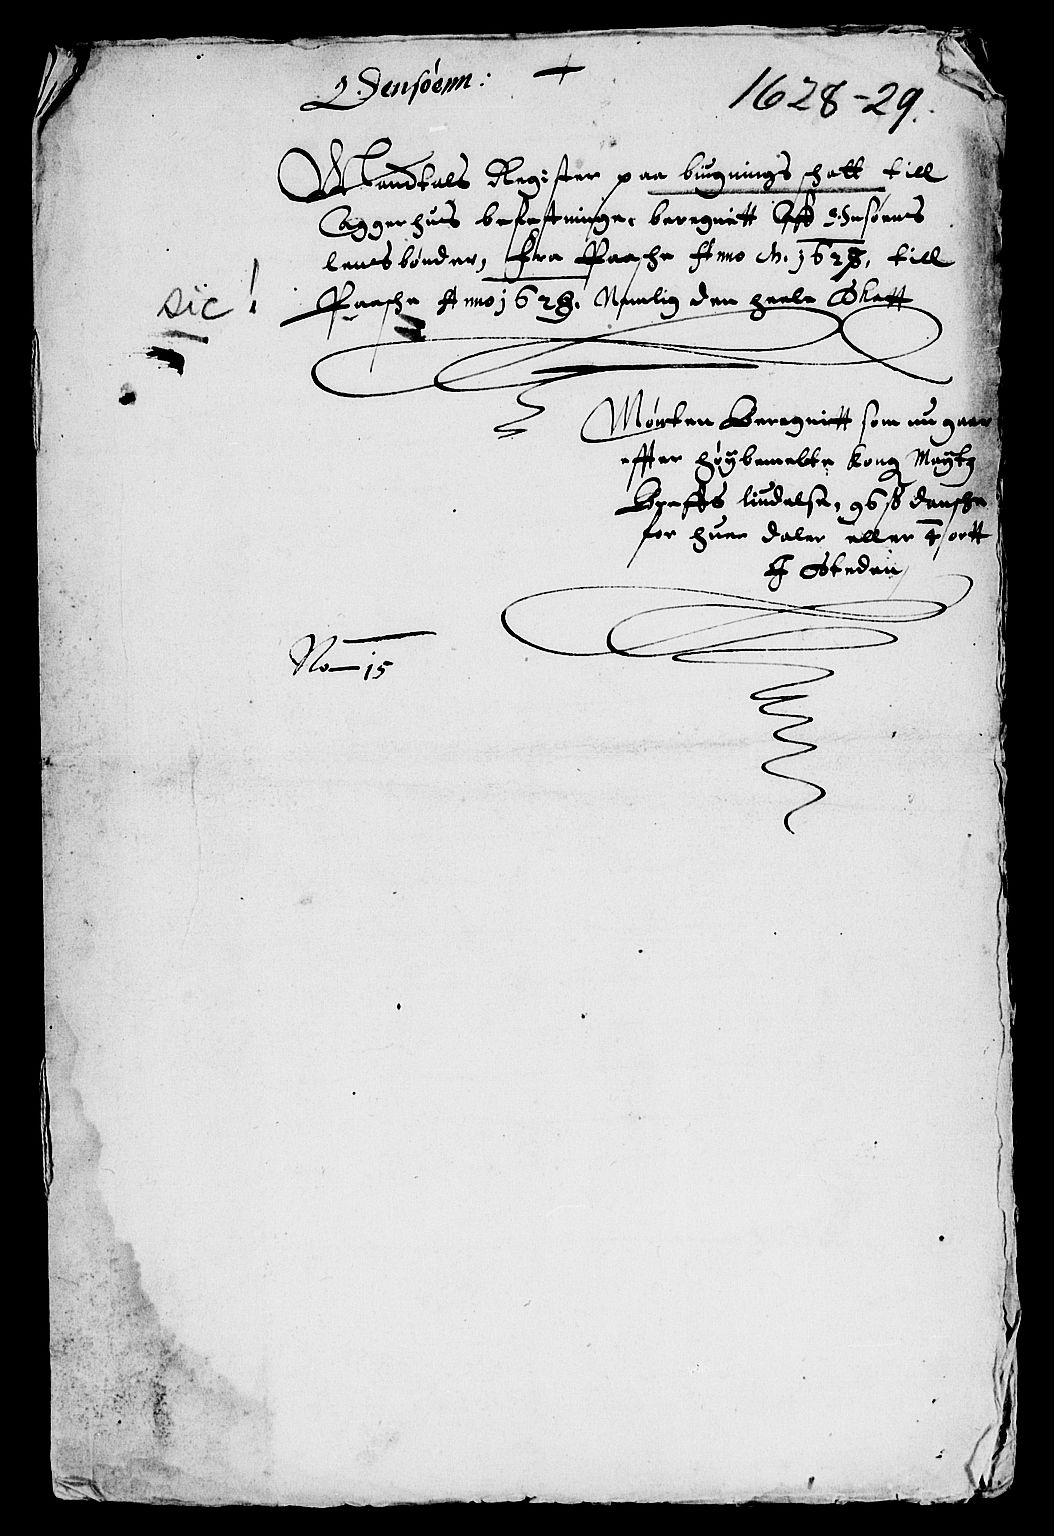 Iensøenn:
1628-29.
Mandtals Register paa biugnings schatt till
Aggerhuus befestninge, beregnitt Aff Iensøens
lensbønder, fra Paasche Anno M. 1628, till
Paasche Anno 1628. Nemlig den heele Skatt
sic!
Mønten Beregnitt som nu gaar
effter høybemelte Kong Maytz
Breffs liudelse, 96 ß dansche
for huer daler eller 4 ortt
I Steden
No 15